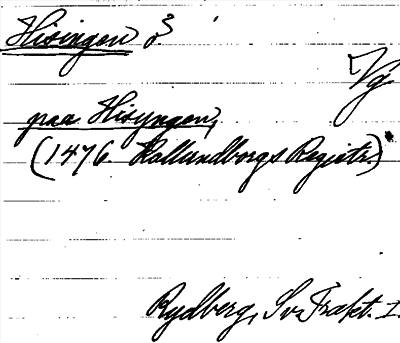 Hisingen ö.
Vg
paa Hisyngen,
(1476. Kallundborgs Registr.)
Rydberg, Sv Trakt. I.